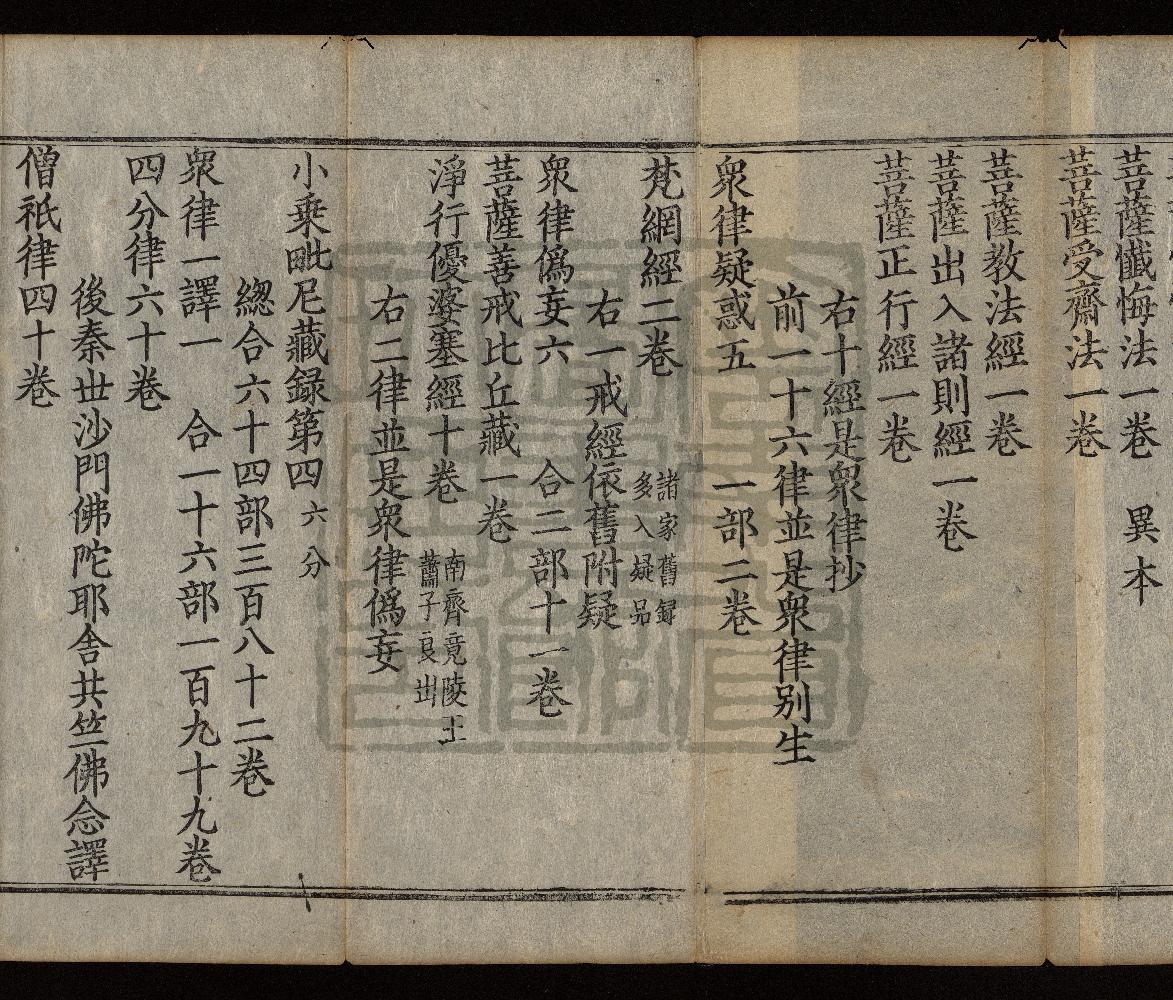 菩薩懺悔法一卷　異本
菩薩受齋法一卷
菩薩教法經一卷
菩薩出入諸則經一卷
菩薩正行經一卷
右十經是衆律抄
前一十六律並是衆律别生
衆律疑惑五　一部二卷
梵網經二卷　諸家舊録多入疑品
右一戒經依舊附疑
衆律僞妄六　合二部十一卷
菩薩善戒比丘藏一卷
淨行優婆塞經十卷　南齊竟陵王蕭子良出
右二律並是衆律僞妄
小乗毗尼藏録第四　六分
總合六十四部三百八十二卷
衆律一譯一　合一十六部一百九十九卷
四分律六十卷
後秦丗沙門佛陀耶舎共竺佛念譯
僧祇律四十卷